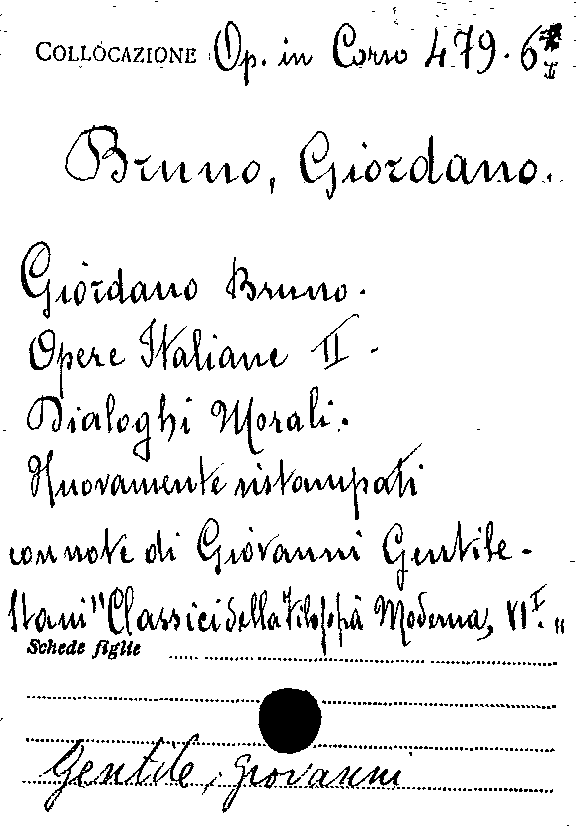 COLLOCAZIONE Op. in Corso 479. 6 I
Bruno, Giordano.
Giordano Bruno.
Opere Italiane II.
Dialoghi Morali.
Nuovamente ristampati
con note di Giovanni Gentile -
"Classici della Filosofia Moderna, VI I."
Schede figlie
Gentile, Giovanni